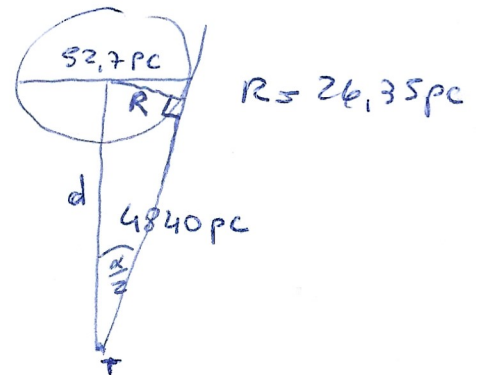 52,7 pc
R = 26,35 pc
R
d
4840 pc
α/2
T